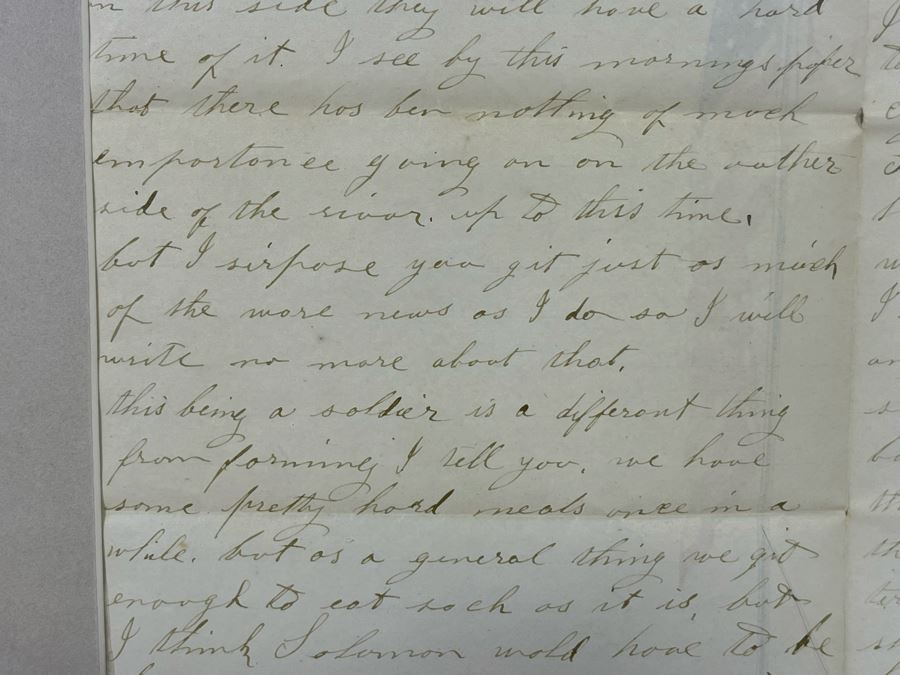 on this side they will have a hard
time of it. I see by this mornings paper
that there has ben nothing of much
emportance going on on the outher
side of the rivor. up to this time.
but I sirpose you git just as much
of the wore news as I do so I will
write no more about that.
this being a soldier is a differant thing
from farming I tell you. we have
some pretty hard meals once in a
while. but as a general thing we git
enough to eat such as it is, but
I think Solomon wold have to be